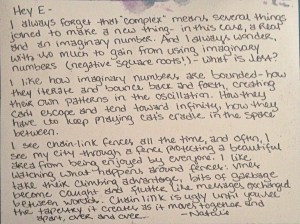 Hey E-
I always forget that "complex" means several things
joined to make a new thing - in this case, a real
and an imaginary number. And I always wonder,
with so much to gain from using imaginary
numbers (negative square roots!) - what is lost?
I like how imaginary numbers are bounded - how
they iterate and bounce back and forth, creating
their own patterns in the oscillation. How they
can't escape and tend toward infinity, how they
have to keep playing cat's cradle in the space
between.
I see chain-link fences all the time, and often, I
see my city through a fence, protecting a beautiful
space from being enjoyed by everyone. I like
watching what happens around fences. Vines
take think climbing advantage, bits of garbage
become caught and flutter like messages exchanged
between worlds. Chain link is ugly until I travel
the tapestry it creates as it moves together and
apart, over and over. -Natalie